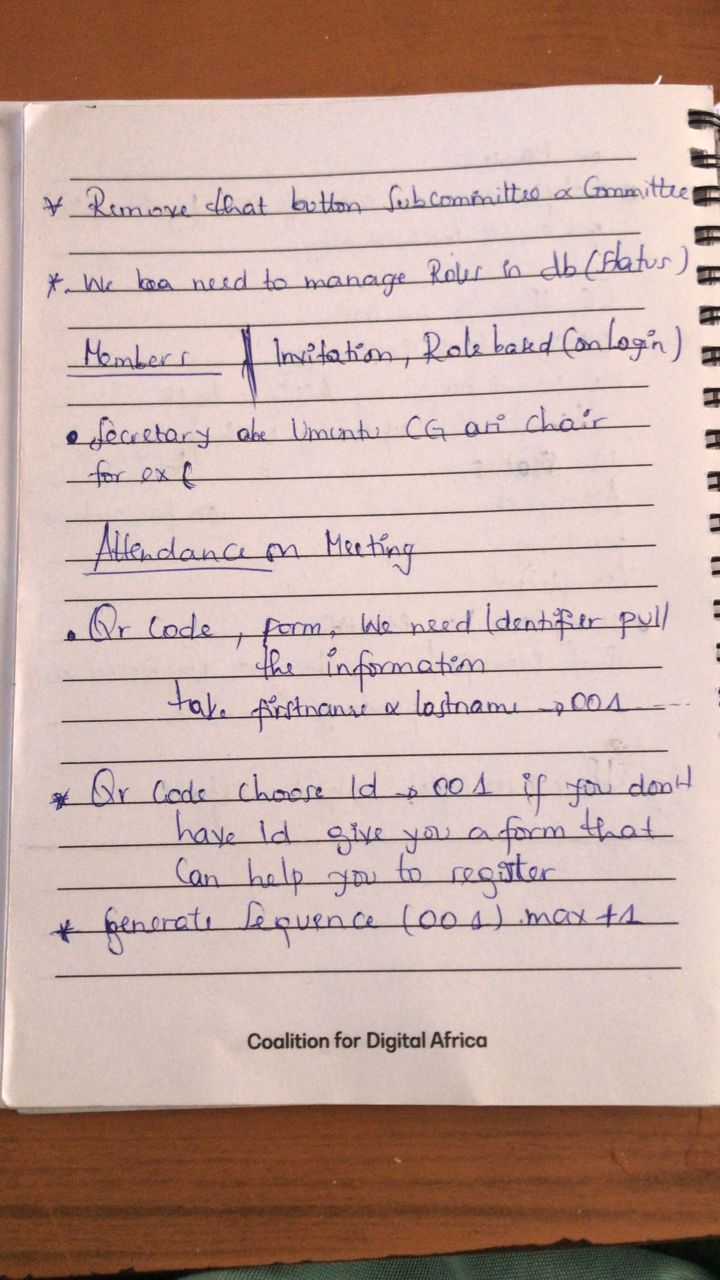 * Remove that button Subcommittee & Committee
*. We need to manage Roles in db (Status)
Members Invitation, Role based (on login)
• Secretary abe Umuntu CG ari chair
for ex
Attendance on Meeting
• Qr Code, form, We need Identifier pull
the information
take firstname & lastname → 001 ---
* Qr Code choose Id → 001 if you don't
have Id give you a form that
Can help you to register
* generate Sequence (001) max +1
Coalition for Digital Africa